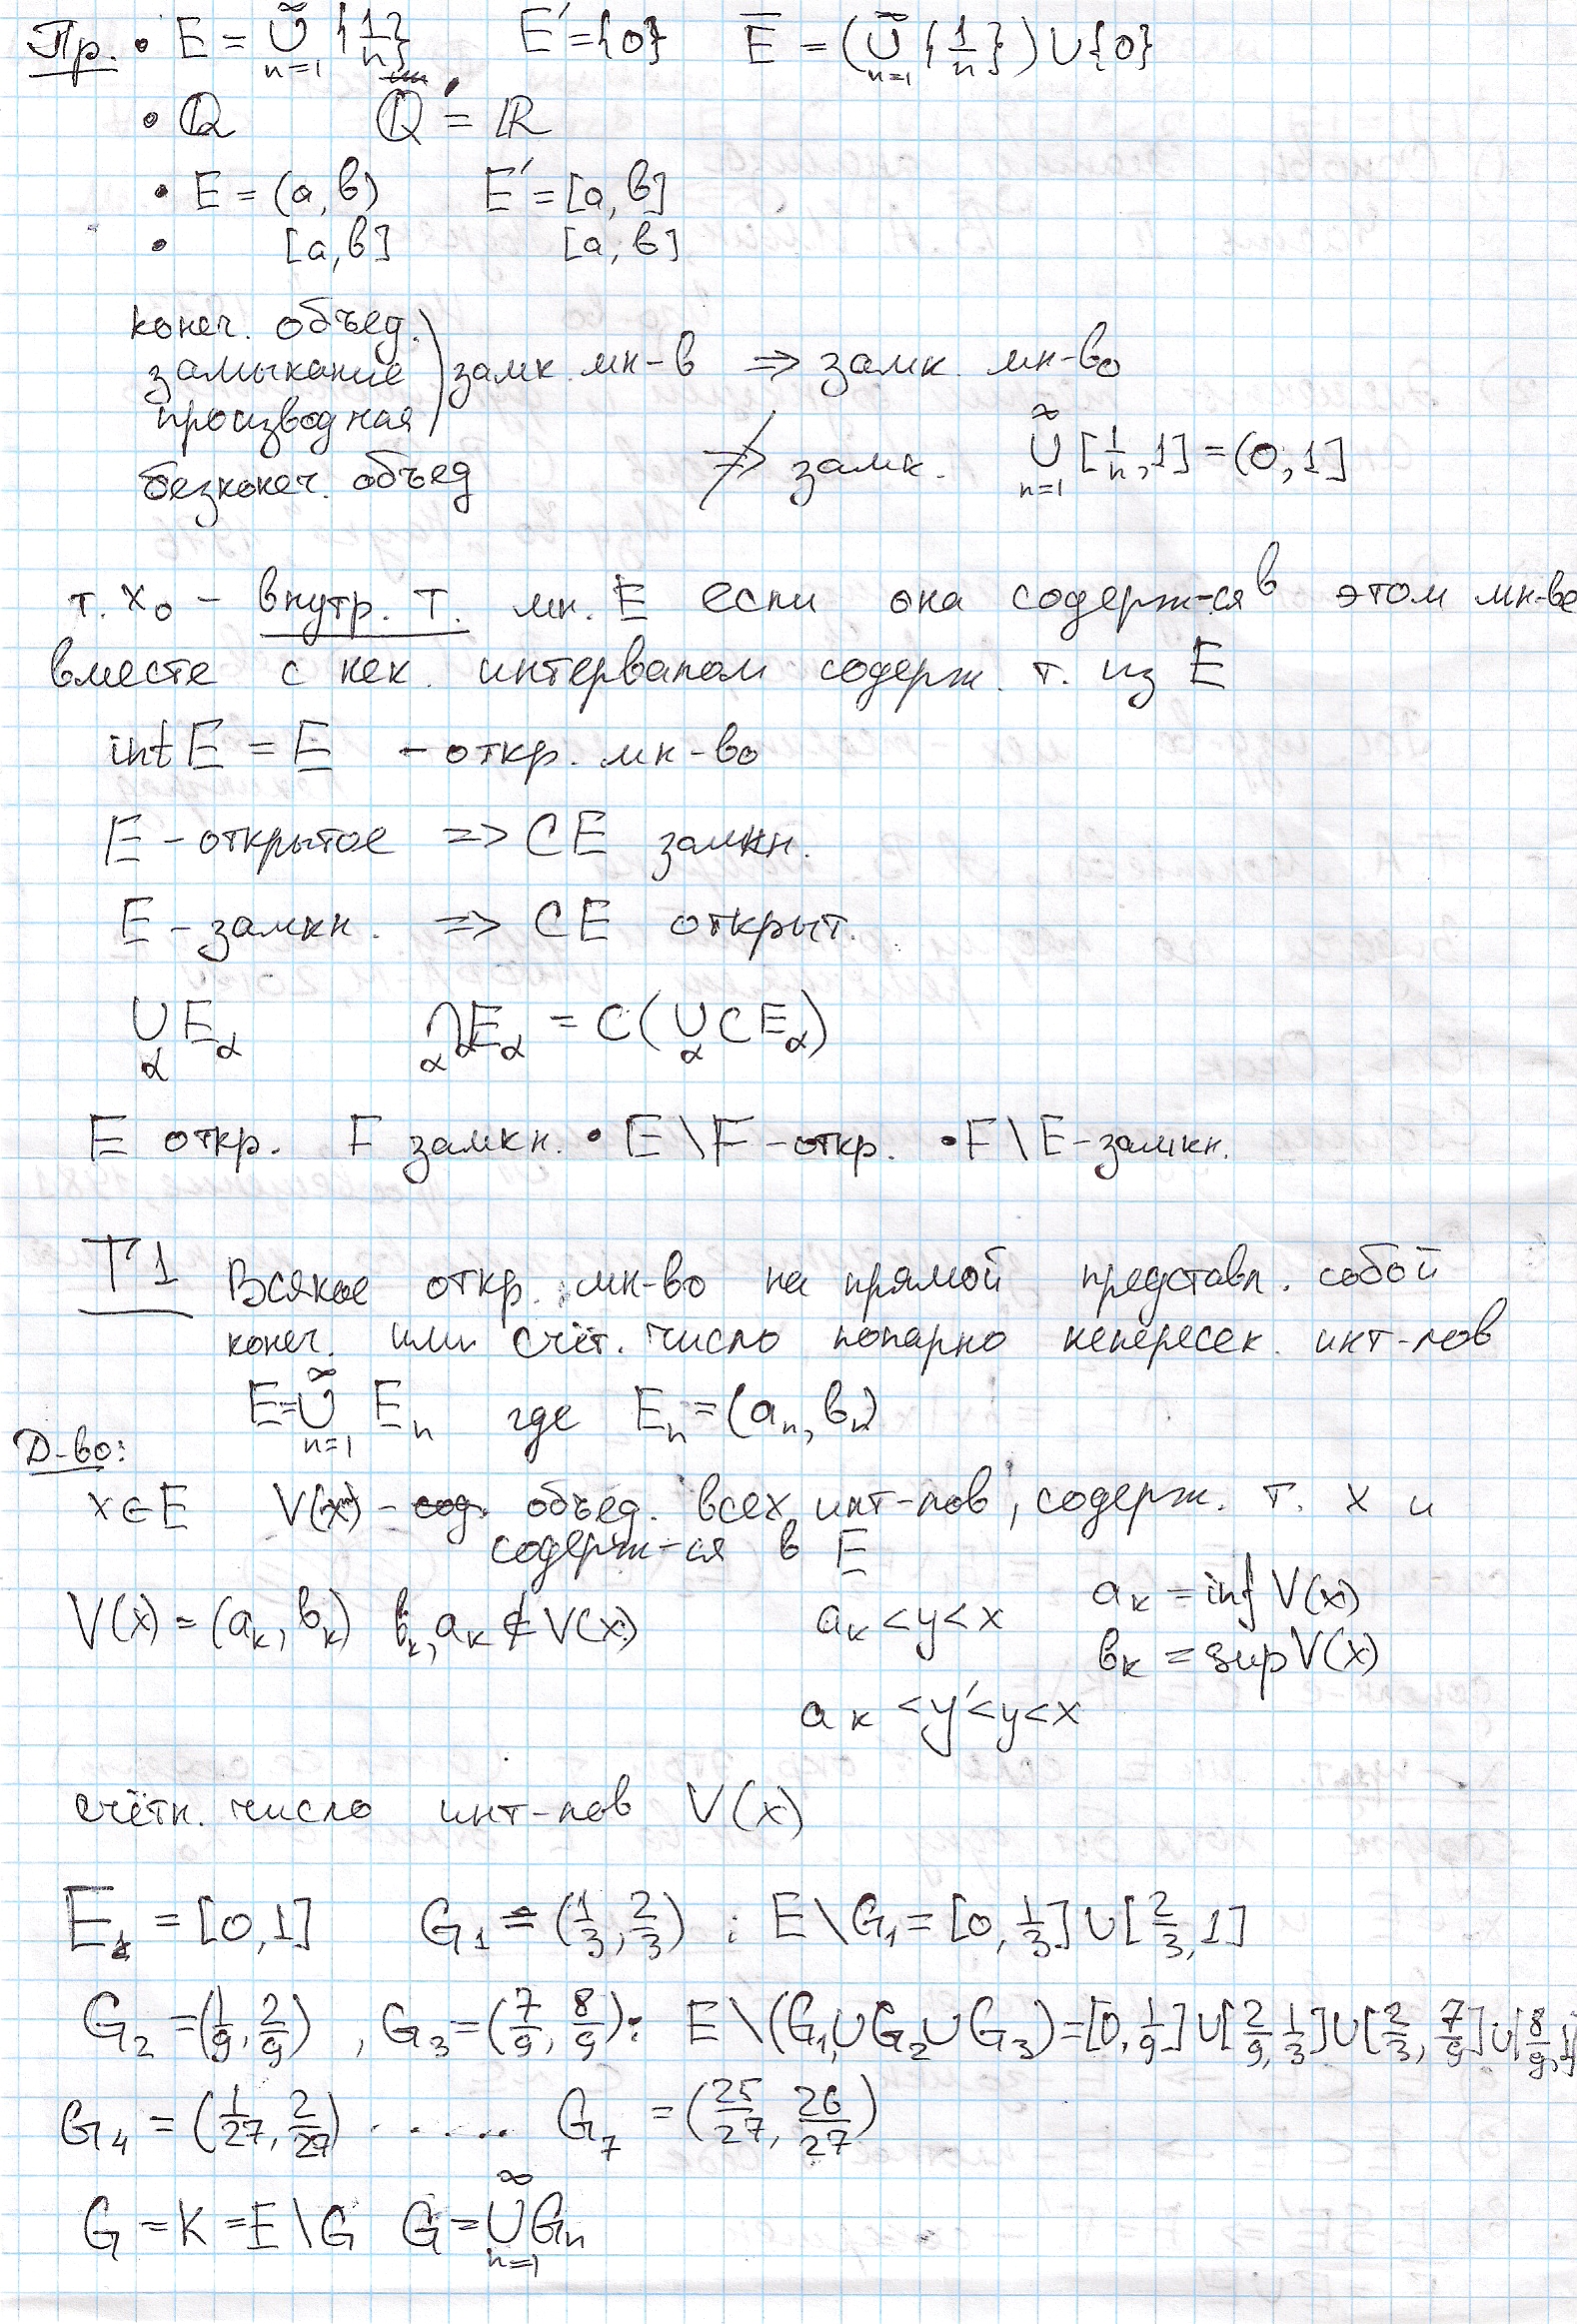 Пр. • E = ∪_{n=1}^∞ {1/n} E' = {0} E̅ = (∪_{n=1}^∞ {1/n}) ∪ {0}
• ℚ ℚ' = ℝ
• E = (a, b) E' = [a, b]
• [a, b] [a, b]
конеч. объед.
замыкание ) замк. мн-в ⇒ замк. мн-во
производная
безконеч. объед ⇏ замк. ∪_{n=1}^∞ [1/n, 1] = (0, 1]
т. x₀ – внутр. т. мн. E если она содерж-ся в этом мн-ве
вместе с нек. интервалом содерж. т. из E
int E = E – откр. мн-во
E – открытое ⇒ CE замкн.
E – замкн. ⇒ CE открыт.
∪_α E_α ∩_α E_α = C(∪_α CE_α)
E откр. F замкн. • E \ F – откр. • F \ E – замкн.
Т 1 Всякое откр. мн-во на прямой представл. собой
конеч. или счёт. число попарно непересек. инт-лов
E = ∪_{n=1}^∞ E_n где E_n = (a_n, b_n)
Д-во:
x ∈ E V(x) – объед. всех инт-лов, содерж. т. x и
содерж-ся в E
V(x) = (a_k, b_k) b_k, a_k ∉ V(x) a_k < y < x a_k = inf V(x)
b_k = sup V(x)
a_k < y' < y < x
счётн. число инт-лов V(x)
E₁ = [0, 1] G₁ = (1/3, 2/3) : E \ G₁ = [0, 1/3] ∪ [2/3, 1]
G₂ = (1/9, 2/9) , G₃ = (7/9, 8/9) : E \ (G₁ ∪ G₂ ∪ G₃) = [0, 1/9] ∪ [2/9, 1/3] ∪ [2/3, 7/9] ∪ [8/9, 1]
G₄ = (1/27, 2/27) ...... G₇ = (25/27, 26/27)
G = K = E \ G G = ∪_{n=1}^∞ G_n